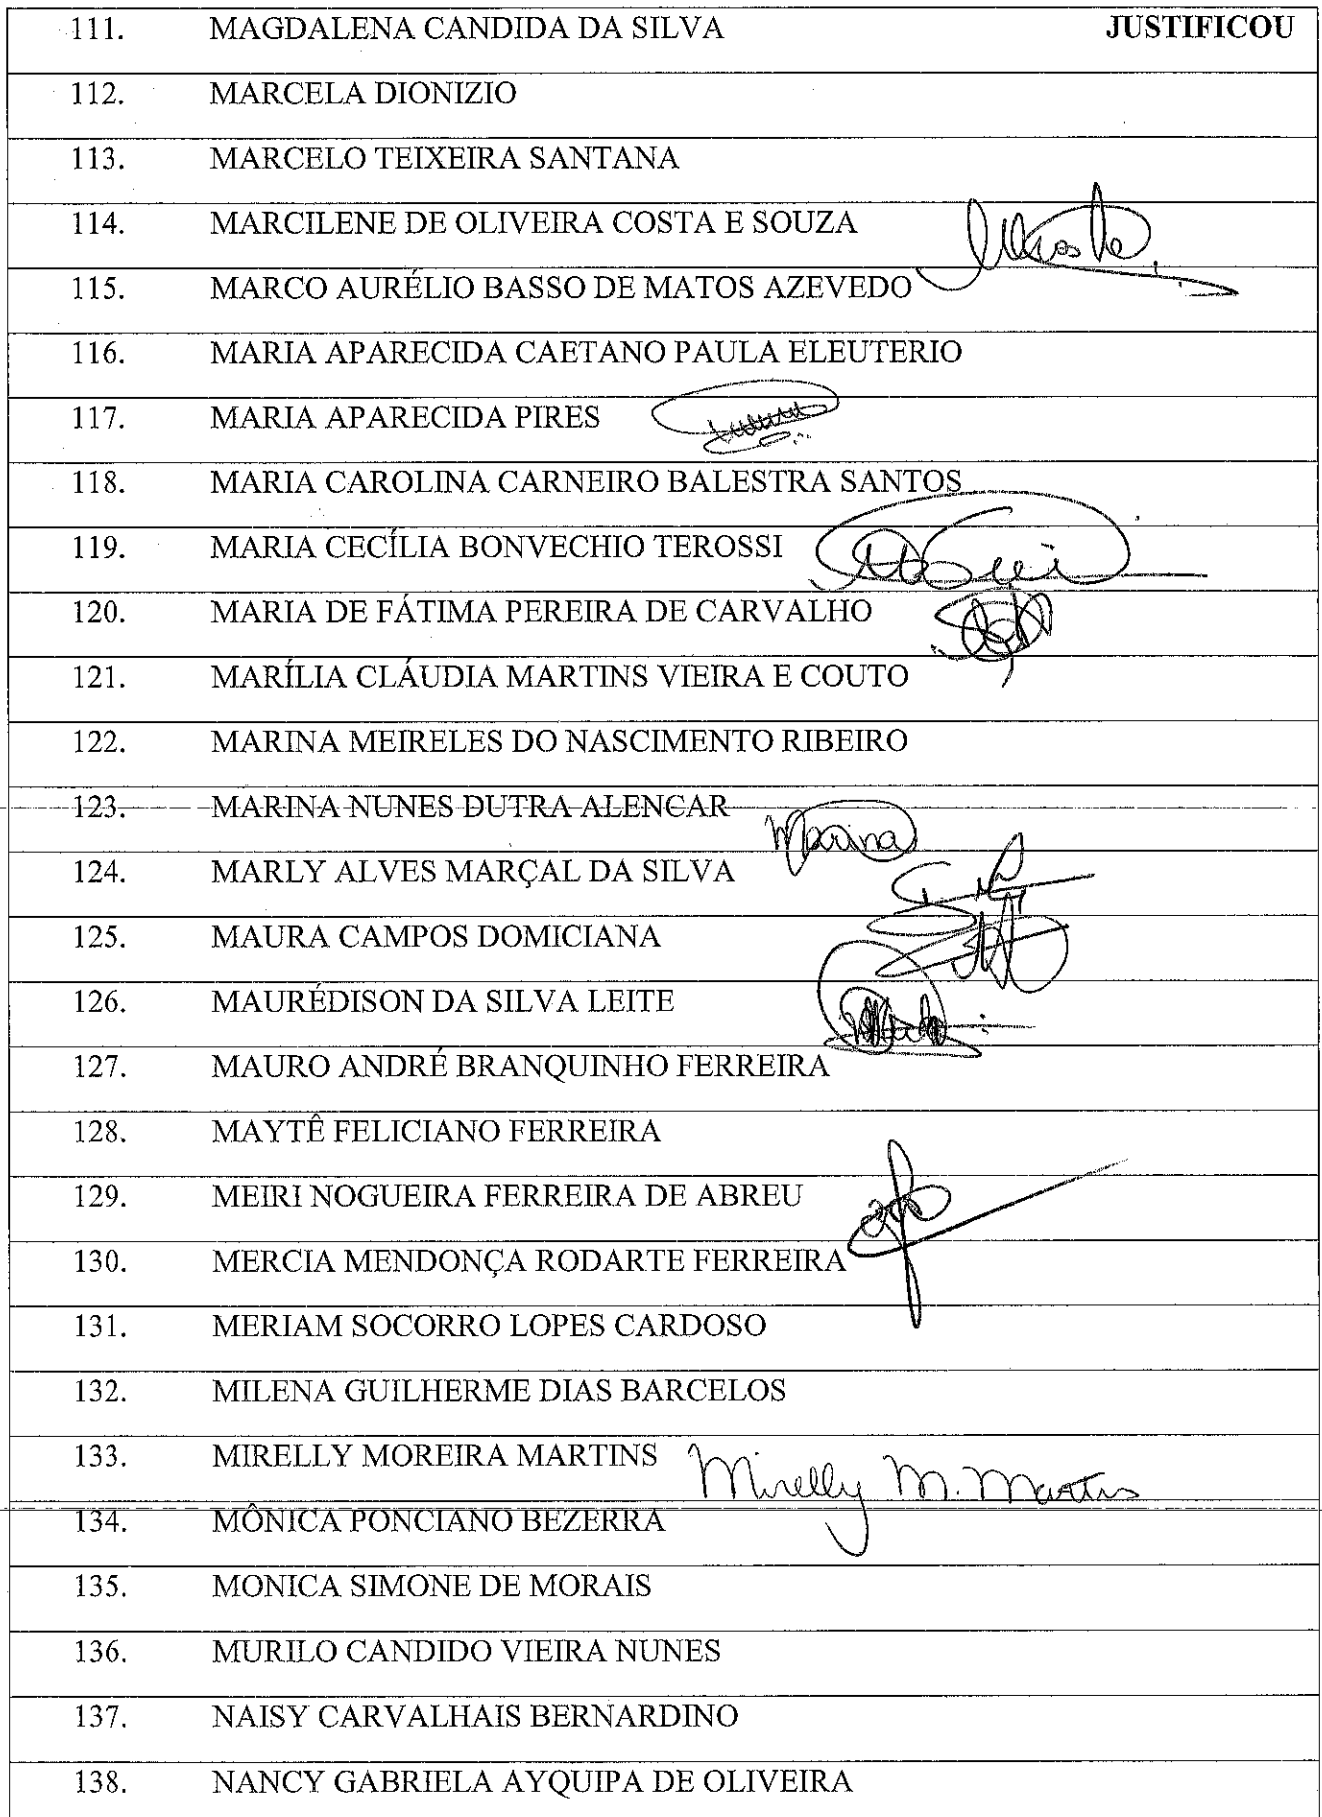 111. MAGDALENA CANDIDA DA SILVA JUSTIFICOU
112. MARCELA DIONIZIO
113. MARCELO TEIXEIRA SANTANA
114. MARCILENE DE OLIVEIRA COSTA E SOUZA
115. MARCO AURÉLIO BASSO DE MATOS AZEVEDO
116. MARIA APARECIDA CAETANO PAULA ELEUTERIO
117. MARIA APARECIDA PIRES
118. MARIA CAROLINA CARNEIRO BALESTRA SANTOS
119. MARIA CECÍLIA BONVECHIO TEROSSI
120. MARIA DE FÁTIMA PEREIRA DE CARVALHO
121. MARÍLIA CLÁUDIA MARTINS VIEIRA E COUTO
122. MARINA MEIRELES DO NASCIMENTO RIBEIRO
123. MARINA NUNES DUTRA ALENCAR Marina
124. MARLY ALVES MARÇAL DA SILVA
125. MAURA CAMPOS DOMICIANA
126. MAURÉDISON DA SILVA LEITE
127. MAURO ANDRÉ BRANQUINHO FERREIRA
128. MAYTÊ FELICIANO FERREIRA
129. MEIRI NOGUEIRA FERREIRA DE ABREU
130. MERCIA MENDONÇA RODARTE FERREIRA
131. MERIAM SOCORRO LOPES CARDOSO
132. MILENA GUILHERME DIAS BARCELOS
133. MIRELLY MOREIRA MARTINS Mirelly M. Martins
134. MÔNICA PONCIANO BEZERRA
135. MONICA SIMONE DE MORAIS
136. MURILO CANDIDO VIEIRA NUNES
137. NAISY CARVALHAIS BERNARDINO
138. NANCY GABRIELA AYQUIPA DE OLIVEIRA